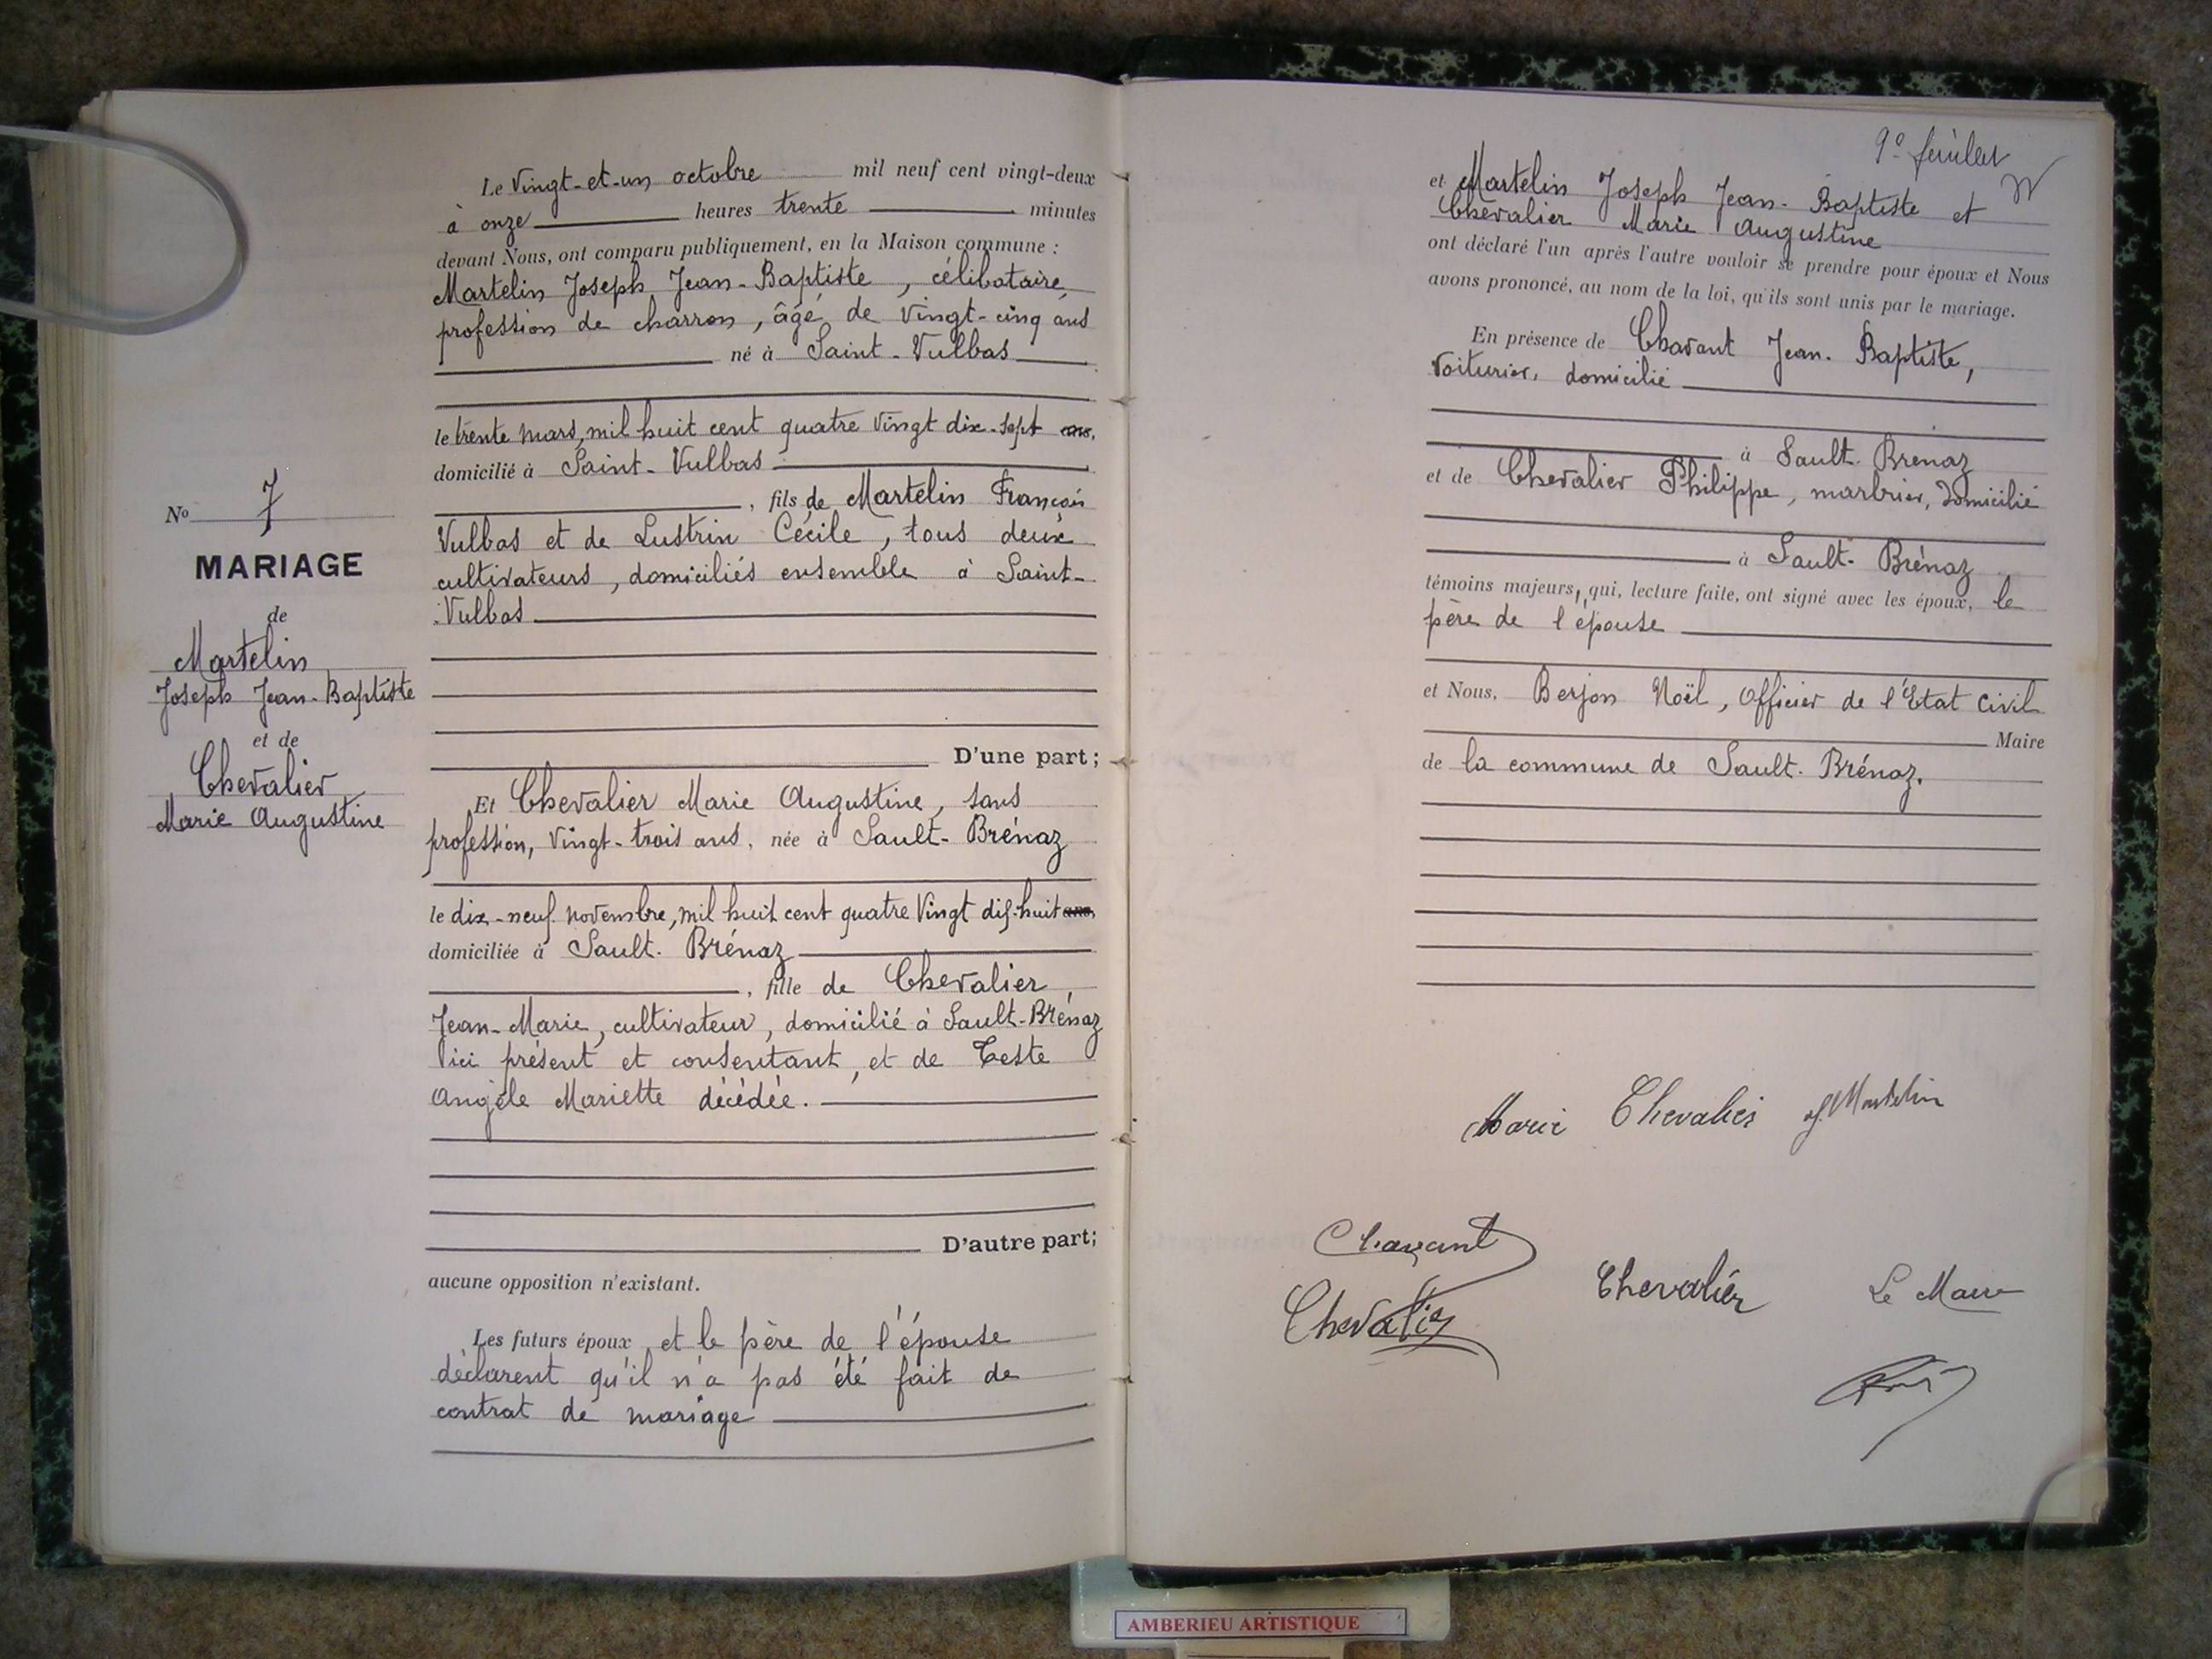 N° 7
MARIAGE
de
Martelin
Joseph Jean-Baptiste
et de
Chevalier
Marie Augustine
Le Vingt-et-un octobre mil neuf cent vingt-deux
à onze heures trente minutes
devant Nous, ont comparu publiquement, en la Maison commune :
Martelin Joseph Jean-Baptiste, célibataire,
profession de charron, âgé de vingt-cinq ans
né à Saint-Vulbas
le trente mars, mil huit cent quatre vingt dix-sept ans,
domicilié à Saint-Vulbas
, fils de Martelin François
Vulbas et de Lustrin Cécile, tous deux
cultivateurs, domiciliés ensemble à Saint-
Vulbas
D'une part;
Et Chevalier Marie Augustine, sans
profession, Vingt-trois ans, née à Sault-Brénaz
le dix-neuf novembre, mil huit cent quatre Vingt dix-huit ans,
domiciliée à Sault-Brénaz
, fille de Chevalier,
Jean-Marie, cultivateur, domicilié à Sault-Brénaz
ici présent et consentant, et de Teste
Angèle Mariette décédée.
D'autre part;
aucune opposition n'existant.
Les futurs époux et le père de l'épouse
déclarent qu'il n'a pas été fait de
contrat de mariage
9e feuillet
et Martelin Joseph Jean-Baptiste et
Chevalier Marie Augustine
ont déclaré l'un après l'autre vouloir se prendre pour époux et Nous
avons prononcé, au nom de la loi, qu'ils sont unis par le mariage.
En présence de Chavant Jean-Baptiste,
Voiturier, domicilié
à Sault-Brenaz
et de Chevalier Philippe, marbrier, domicilié
à Sault-Brénaz
témoins majeurs, qui, lecture faite, ont signé avec les époux, le
père de l'épouse
et Nous, Berjon Noël, Officier de l'Etat Civil
Maire
de la commune de Sault-Brénaz.
Marie Chevalier J. Martelin
Chavant
Chevalier Chevalier Le Maire
AMBERIEU ARTISTIQUE